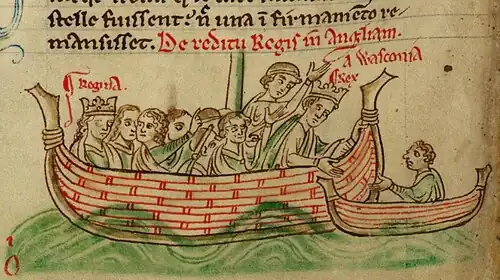 stelle fuissent: n̄ una ī firmamēto re-
mansisset. De reditu Regis in Angliam.
a Wasconia
Regina.
Rex